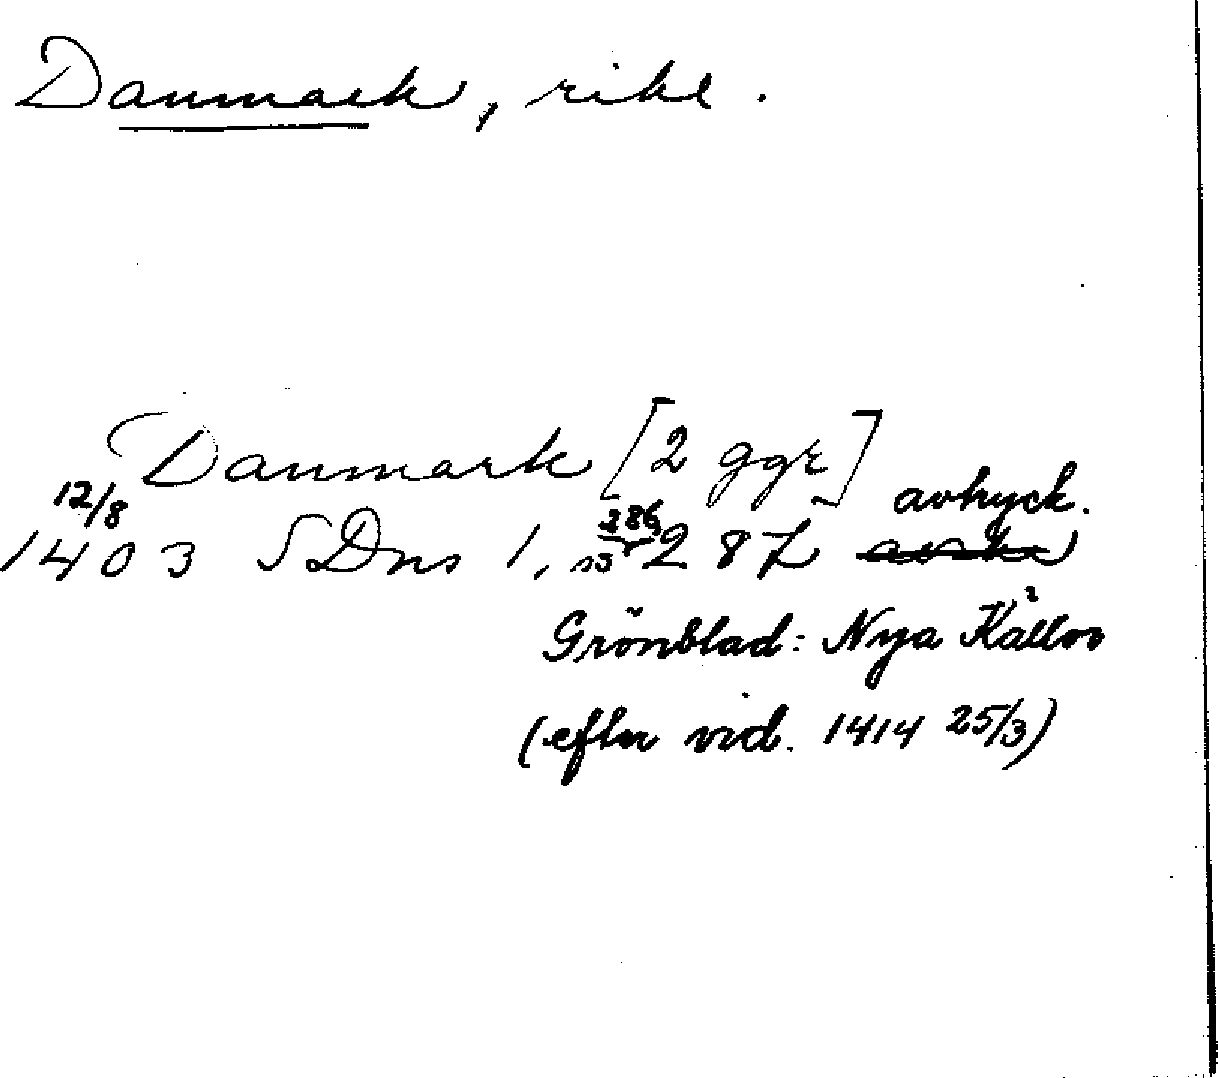 Danmark, rike.
Danmark [2 ggr]
12/8 avtryck.
1403 SDns 1, s 286, 287
Grönblad: Nya Källor
(efter vid. 1414 25/3)